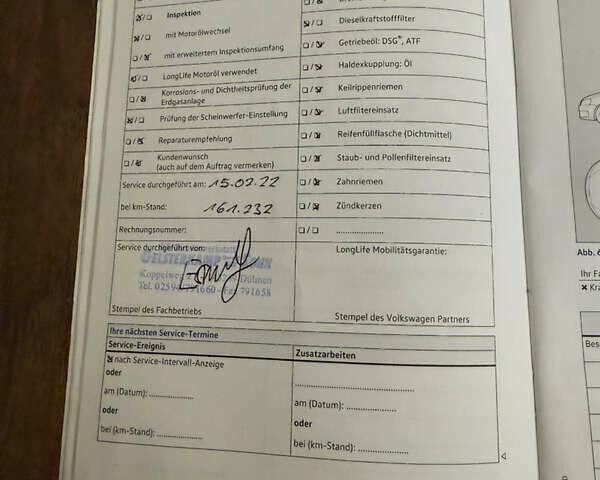 Inspektion
mit Motorölwechsel
mit erweitertem Inspektionsumfang
LongLife Motoröl verwendet
Korrosions- und Dichtheitsprüfung der
Erdgasanlage
Prüfung der Scheinwerfer-Einstellung
Reparaturempfehlung
Kundenwunsch
(auch auf dem Auftrag vermerken)
Service durchgeführt am: 15.02.22
bei km-Stand: 161.232
Rechnungsnummer:
Service durchgeführt von:
Koppelweg Dülmen
Tel. 02594 791660 - Fax 791658
Stempel des Fachbetriebs
Dieselkraftstofffilter
Getriebeöl: DSG®, ATF
Haldexkupplung: Öl
Keilrippenriemen
Luftfiltereinsatz
Reifenfüllflasche (Dichtmittel)
Staub- und Pollenfiltereinsatz
Zahnriemen
Zündkerzen
LongLife Mobilitätsgarantie:
Stempel des Volkswagen Partners
Ihre nächsten Service-Termine
Service-Ereignis
nach Service-Intervall-Anzeige
oder
am (Datum):
oder
bei (km-Stand):
Zusatzarbeiten
am (Datum):
oder
bei (km-Stand):
Abb. 6
Ihr Fa
Kra
Bes